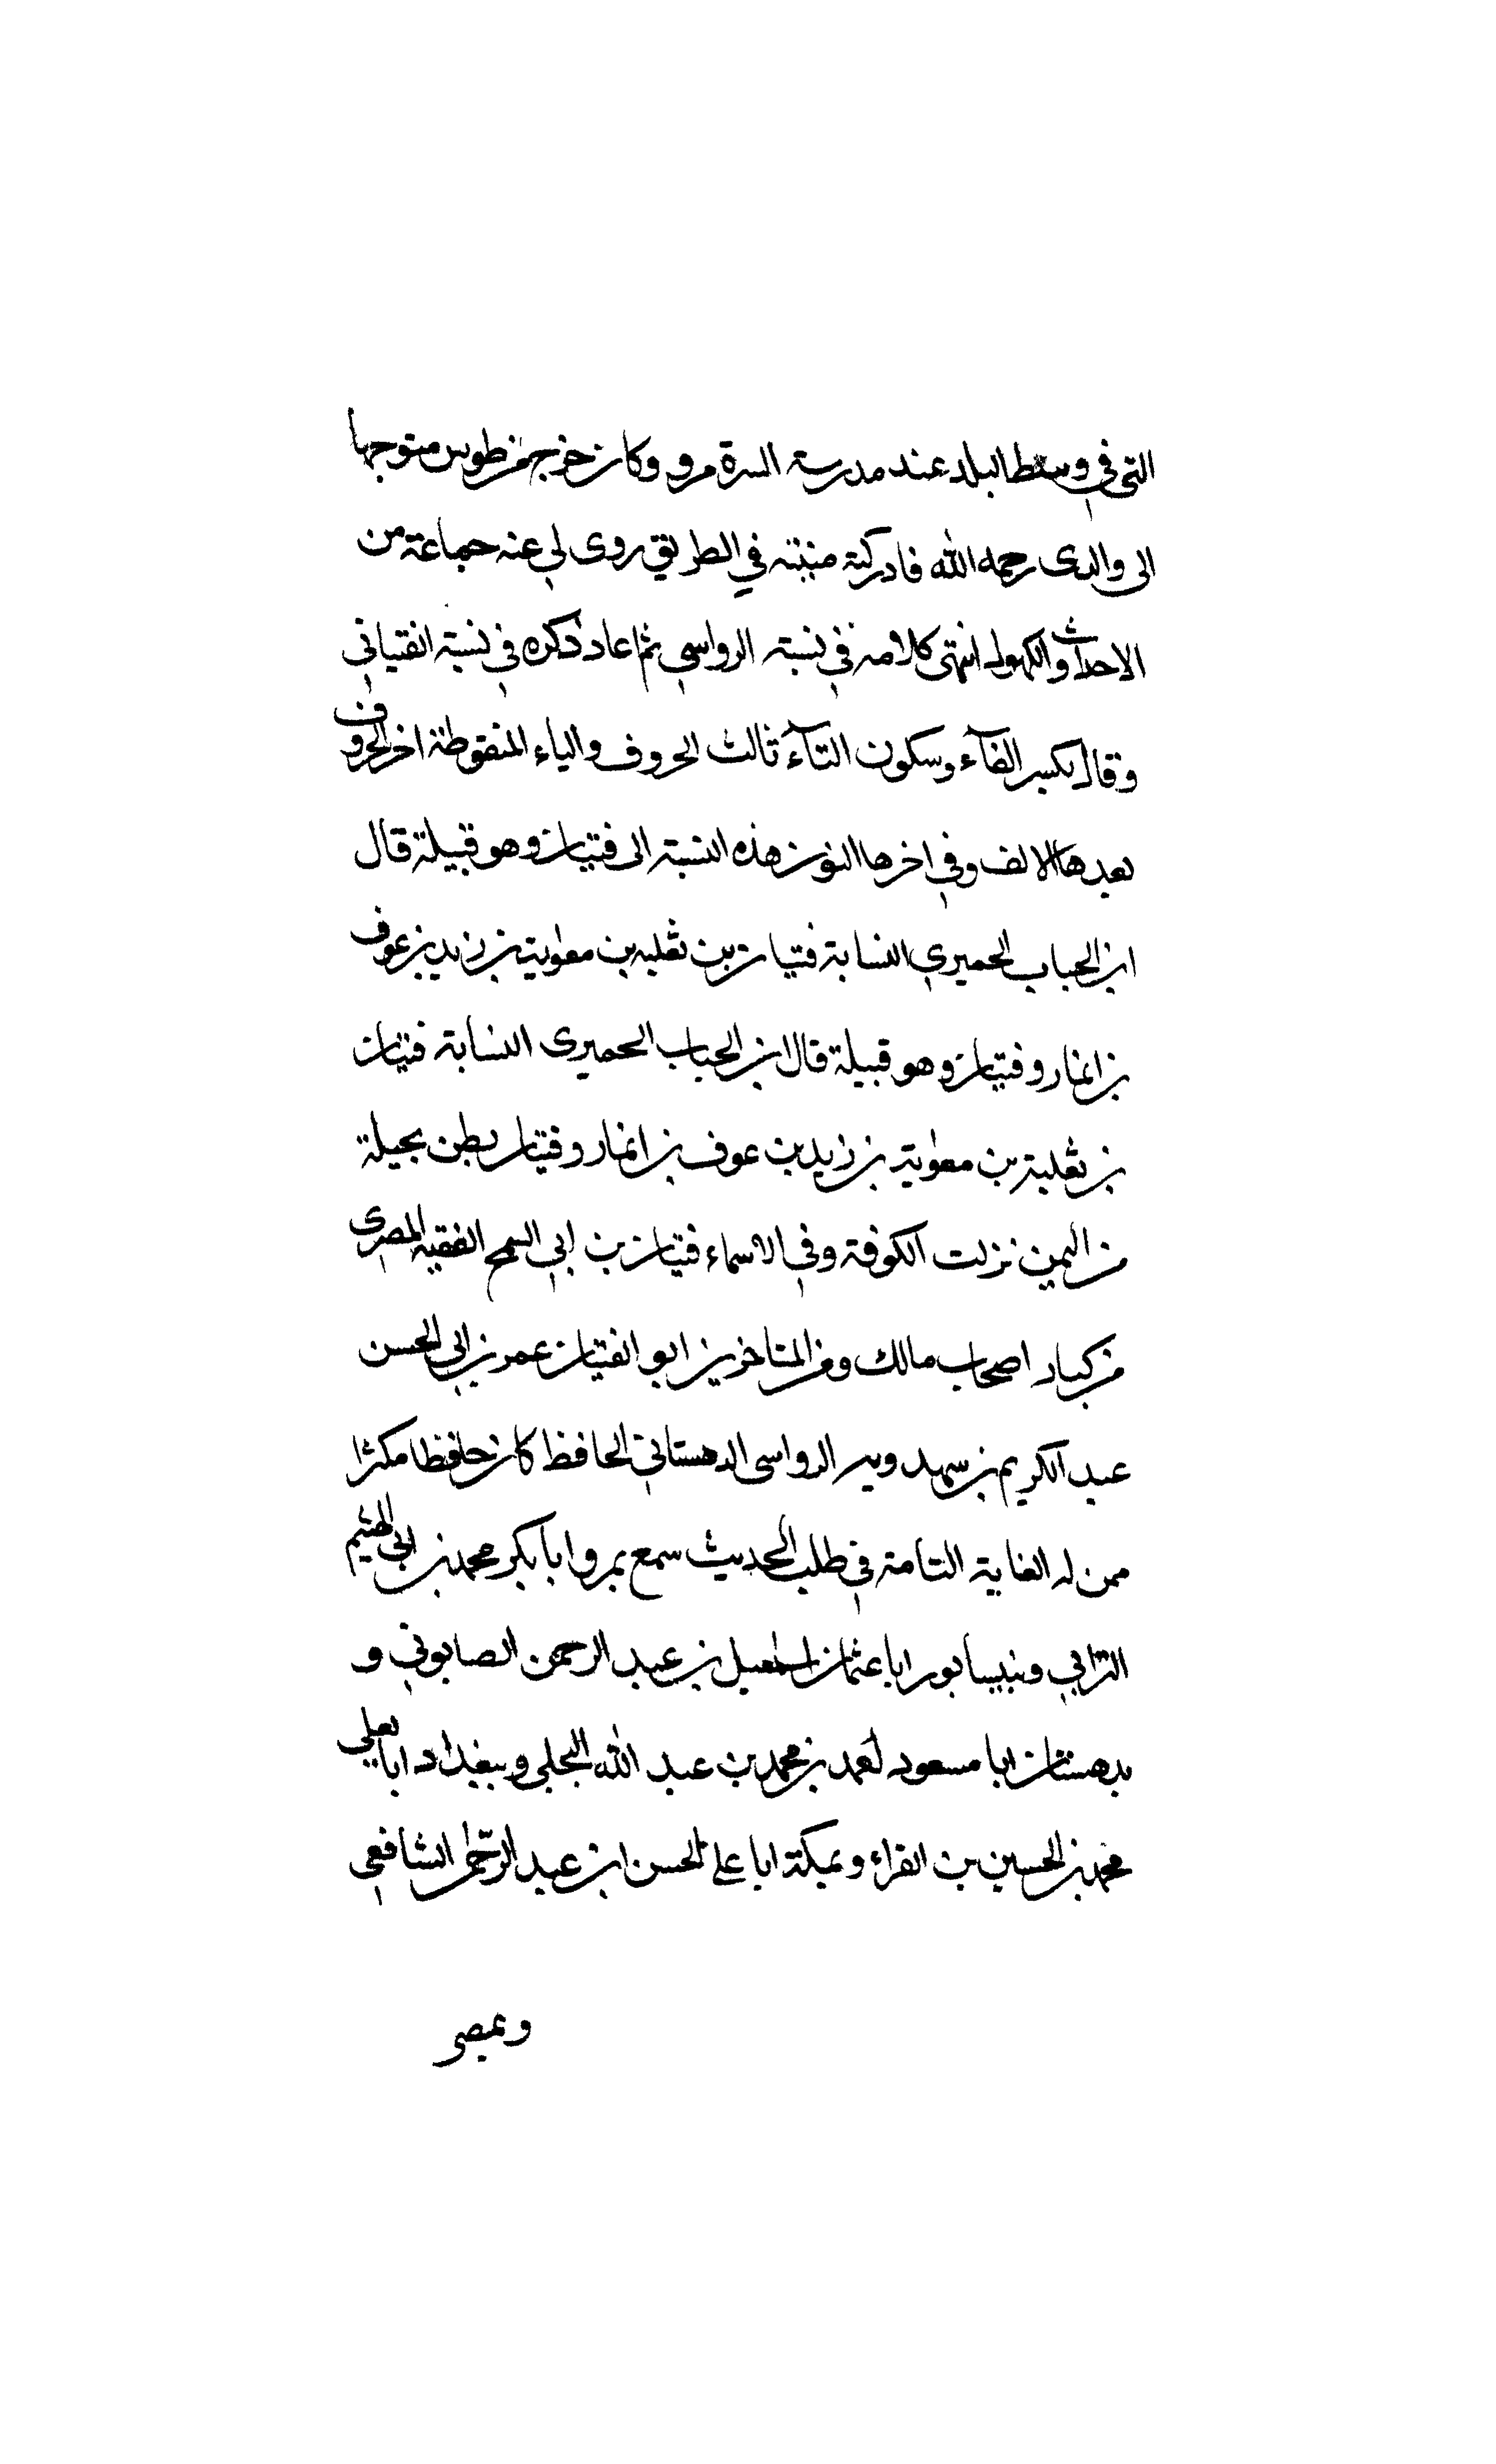 التى في وسط البلد عند مدرسة السرة مرو وكان خرج من طوس متوجها
الى والدى رحمه الله فادركته منيته في الطريق روى لي عنه جماعة من
الاحداث والكهول انتهى كلامه في نسبة الرواسي ثم اعاد ذكره في نسبة الفتياني
وقال بكسر الفآء وسكون التآء ثالث الحروف والياء المنقوطة اخر الحروف
بعدها الالف وفي اخرها النون هذه النسبة الى فتيان وهو قبيلة قال
ابن الحباب الحميري النسابة فتيان بن ثعلبه بن معوية بن زيد بن عوف
بن انمار وفتيان وهو قبيلة قال ابن الحباب الحميرى النسابة فتيان
بن ثعلبة بن معوية بن زيد بن عوف بن انمار وفتيان بطن بجيلة
من اليمن نزلت الكوفة وفي الاسماء فتيان بن ابي السمح الفقيه المصرى
من كبار اصحاب مالك ومن المتاخرين ابو الفتيان عمر بن ابي الحسن
عبد الكريم بن سهدويه الرواسى الدهستاني الحافظ كان حافظا مكثرا
ممن له الغاية التامة في طلب الحديث سمع بمرو ابا بكر محمد بن ابي الهيثم
الترابي وبنيسابور ابا عثمان اسمعيل بن عبد الرحمن الصابوني و
بدهستان ابا مسعود احمد بن محمد بن عبد الله البجلي وببغداد ابا يعلي
محمد بن الحسين بن الفراء وبمكة ابا على الحسن ابن عبد الرحمن الشافعي
وبمصر